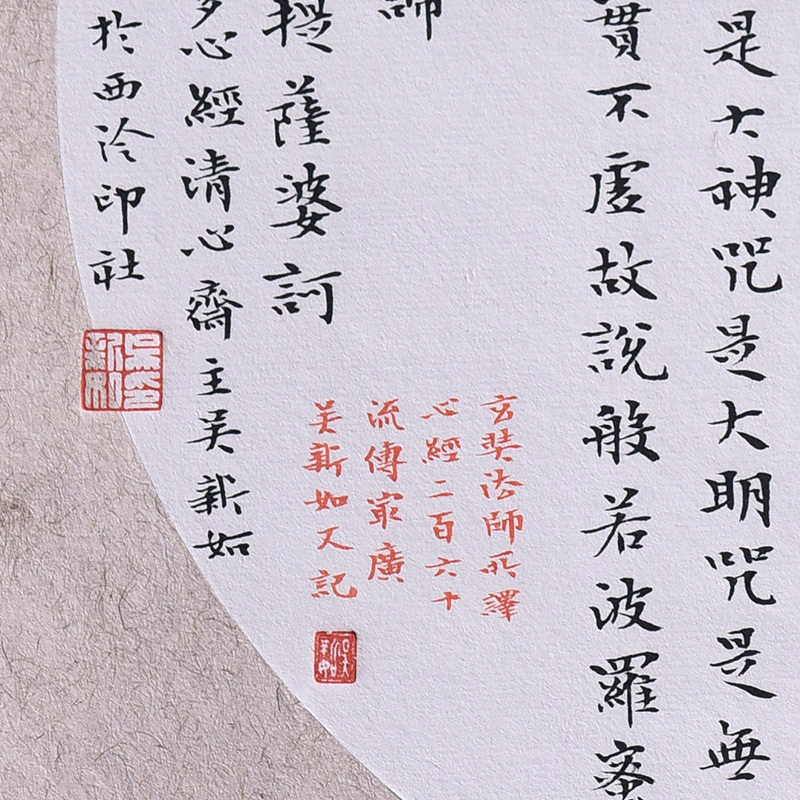 是大神咒是大明咒是無
實不虛故說般若波羅蜜
師
提薩婆訶
多心經清心齋主吴新如
於西泠印社
玄奘法師所譯
心經二百六十
流傳冣廣
吴新如又記